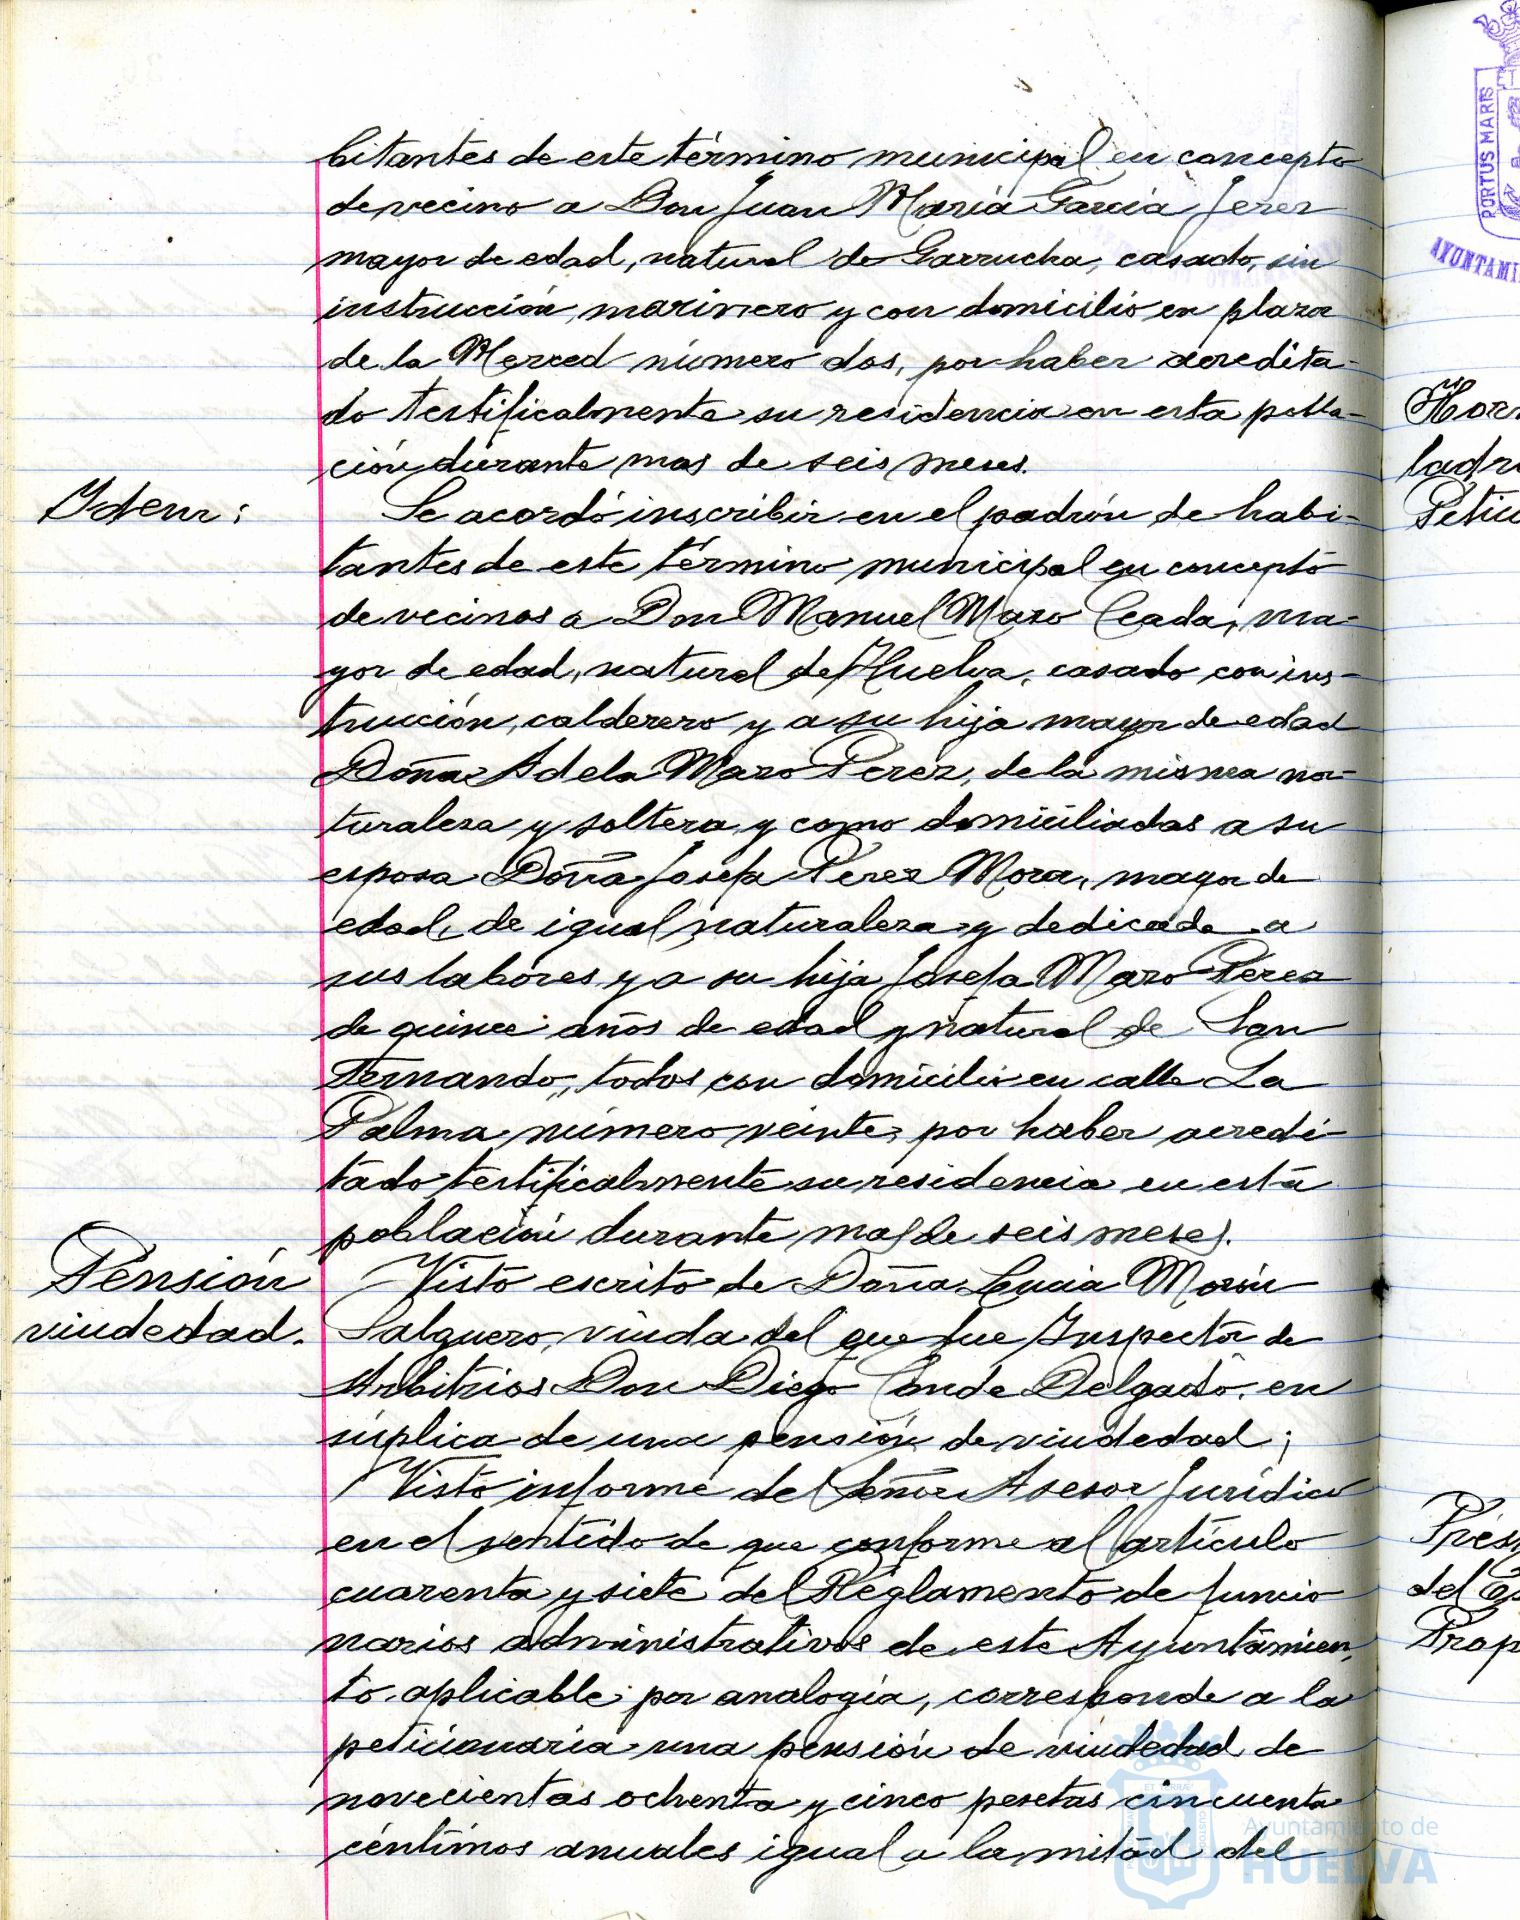 bitantes de este término municipal en concepto
de vecino a Don Juan María García Jerez
mayor de edad, natural de Garrucha, casado, sin
instrucción, marinero y con domicilio en plaza
de la Merced número dos, por haber acredita-
do testificalmente su residencia en esta pobla-
ción durante mas de seis meses.
Idem:
Se acordó inscribir en el padrón de habi-
tantes de este término municipal en concepto
de vecinos a Don Manuel Mazo Ceada, ma-
yor de edad, natural de Huelva, casado con ins-
trucción, calderero y a su hija mayor de edad
Doña Adela Mazo Perez, de la misma na-
turaleza y soltera y como domiciliadas a su
esposa Doña Josefa Perez Mora, mayor de
edad, de igual naturaleza y dedicada a
sus labores y a su hija Josefa Mazo Perez
de quince años de edad y natural de San
Fernando, todos con domicilio en calle La
Palma número veinte, por haber acredi-
tado testificalmente su residencia en esta
población durante mas de seis meses.
Pensión
viudedad.
Visto escrito de Doña Lucia Morón
Salguero, viuda del que fue Inspector de
Arbitrios Don Diego Conde Delgado, en
súplica de una pensión de viudedad;
Visto informe del Señor Asesor Jurídico
en el sentido de que conforme al artículo
cuarenta y siete del Reglamento de funcio
narios administrativos de este Ayuntamien-
to, aplicable por analogía, corresponde a la
peticionaria una pensión de viudedad de
novecientas ochenta y cinco pesetas cincuenta
céntimos anuales igual a la mitad del
PORTUS MARIS
AYUNTAMI
ladri
Petic
del
Prop
Ayuntamiento de
HUELVA